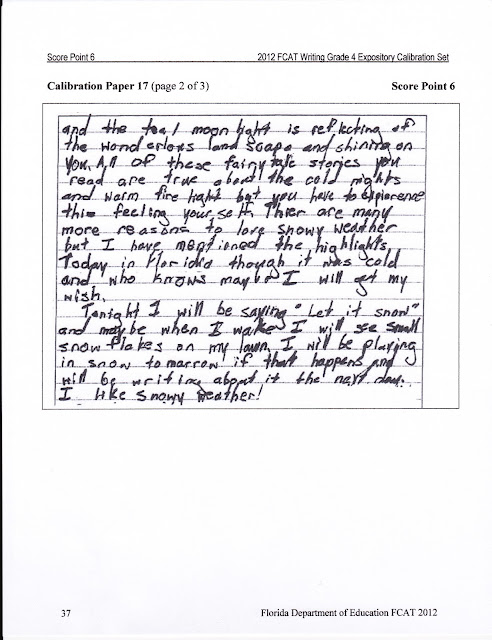 Score Point 6 2012 FCAT Writing Grade 4 Expository Calibration Set
Calibration Paper 17 (page 2 of 3) Score Point 6
and the teal moon light is reflecting of
the wonderlous land scape and shining on
you. All of these fairy tale stories you
read are true about the cold nights
and warm fire light but you have to expierence
this feeling your self. Thier are many
more reasons to love snowy weather
but I have mentioned the highlights.
Today in Florida though it was cold
and who knows maybe I will get my
wish.
Tonight I will be saying "Let it snow"
and maybe when I wake I will see small
snow flakes on my lawn. I will be playing
in snow tomarrow if that happens and
will be writing about it the next day.
I like snowy weather!
37 Florida Department of Education FCAT 2012